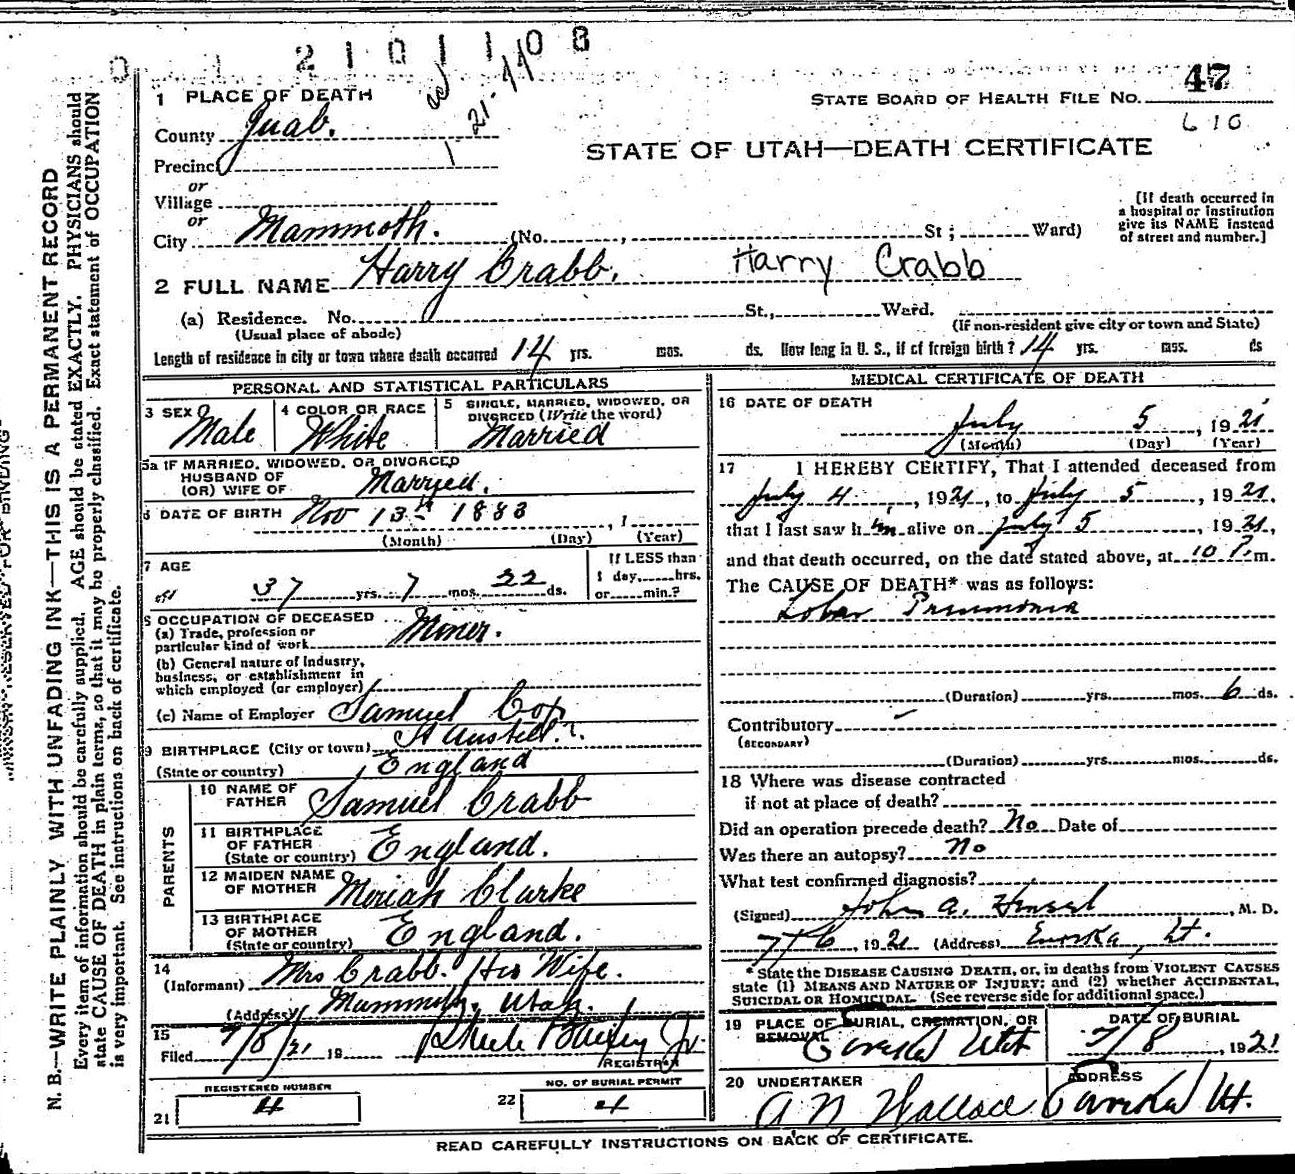 2 1 0 1 1 0 8
21-44
47
STATE BOARD OF HEALTH FILE NO.
610
1 PLACE OF DEATH
County Juab.
Precinct
or
Village
or
City Mammoth. (No. , St; Ward)
STATE OF UTAH—DEATH CERTIFICATE
[If death occurred in
a hospital or institution
give its NAME instead
of street and number.]
2 FULL NAME Harry Crabb. Harry Crabb
(a) Residence. No. St., Ward.
(Usual place of abode) (If non-resident give city or town and State)
Length of residence in city or town where death occurred 14 yrs. mos. ds. How long in U. S., if of foreign birth? 14 yrs. mos. ds
PERSONAL AND STATISTICAL PARTICULARS
3 SEX Male
4 COLOR OR RACE White
5 SINGLE, MARRIED, WIDOWED, OR
DIVORCED (Write the word)
Married
5a IF MARRIED, WIDOWED, OR DIVORCED
HUSBAND OF
(OR) WIFE OF Married.
6 DATE OF BIRTH Nov 13th 1883 , 1
(Month) (Day) (Year)
7 AGE
37 yrs. 7 mos. 22 ds.
If LESS than
1 day, hrs.
or min.?
8 OCCUPATION OF DECEASED
(a) Trade, profession or
particular kind of work Miner.
(b) General nature of Industry,
business, or establishment in
which employed (or employer)
(c) Name of Employer Samuel Cox
9 BIRTHPLACE (City or town) St Austell
(State or country) England
PARENTS
10 NAME OF
FATHER Samuel Crabb
11 BIRTHPLACE
OF FATHER
(State or country) England.
12 MAIDEN NAME
OF MOTHER Moriah Clarke
13 BIRTHPLACE
OF MOTHER
(State or country) England.
14
(Informant) Mrs Crabb. His Wife.
(Address) Mammoth, Utah.
15
Filed 7/8/21 19
Jr.
REGISTRAR
REGISTERED NUMBER
21 4
NO. OF BURIAL PERMIT
22 4
MEDICAL CERTIFICATE OF DEATH
16 DATE OF DEATH
July 5 , 1921
(Month) (Day) (Year)
17 I HEREBY CERTIFY, That I attended deceased from
July 4 , 1921, to July 5 , 1921,
that I last saw him alive on July 5 , 1921,
and that death occurred, on the date stated above, at 10 P.m.
The CAUSE OF DEATH* was as follows:
Lobar Pneumonia
(Duration) yrs. mos. 6 ds.
Contributory
(SECONDARY)
(Duration) yrs. mos. ds.
18 Where was disease contracted
if not at place of death?
Did an operation precede death? No Date of
Was there an autopsy? No
What test confirmed diagnosis?
(Signed) John A. Hensel , M. D.
7/6 , 1921 (Address) Eureka, Ut.
* State the DISEASE CAUSING DEATH, or, in deaths from VIOLENT CAUSES
state (1) MEANS AND NATURE OF INJURY; and (2) whether ACCIDENTAL,
SUICIDAL OR HOMICIDAL. (See reverse side for additional space.)
19 PLACE OF BURIAL, CREMATION, OR
REMOVAL
Eureka Utah
DATE OF BURIAL
7/8 , 1921
20 UNDERTAKER
A. N. Wallace
ADDRESS
Eureka Ut.
READ CAREFULLY INSTRUCTIONS ON BACK OF CERTIFICATE.
N. B.—WRITE PLAINLY WITH UNFADING INK—THIS IS A PERMANENT RECORD
Every item of information should be carefully supplied. AGE should be stated EXACTLY. PHYSICIANS should
state CAUSE OF DEATH in plain terms, so that it may be properly classified. Exact statement of OCCUPATION
is very important. See instructions on back of certificate.